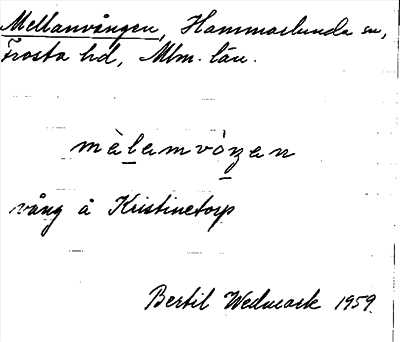 Mellanvången, Hammarlunda sn,
Frosta hd, Mlm. län.
mèlamvòŋen
vång å Kristinetorp
Bertil Wedmark 1959.